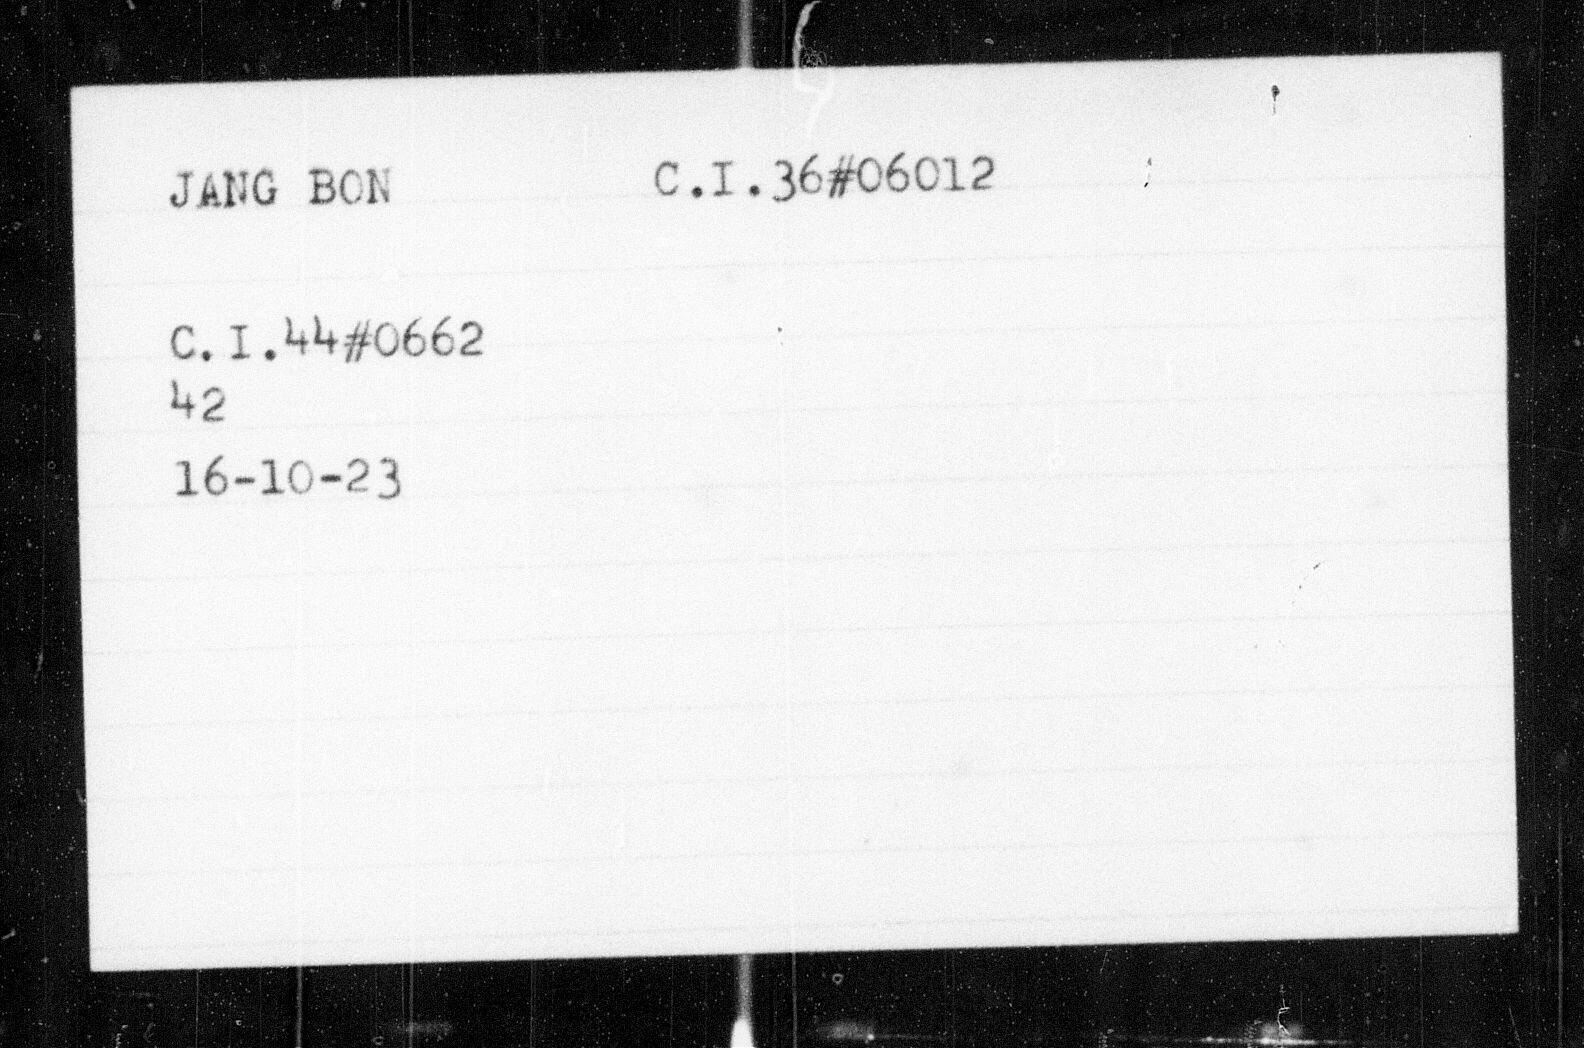 JANG BON C.I.36#06012
C.I.44#0662
42
16-10-23